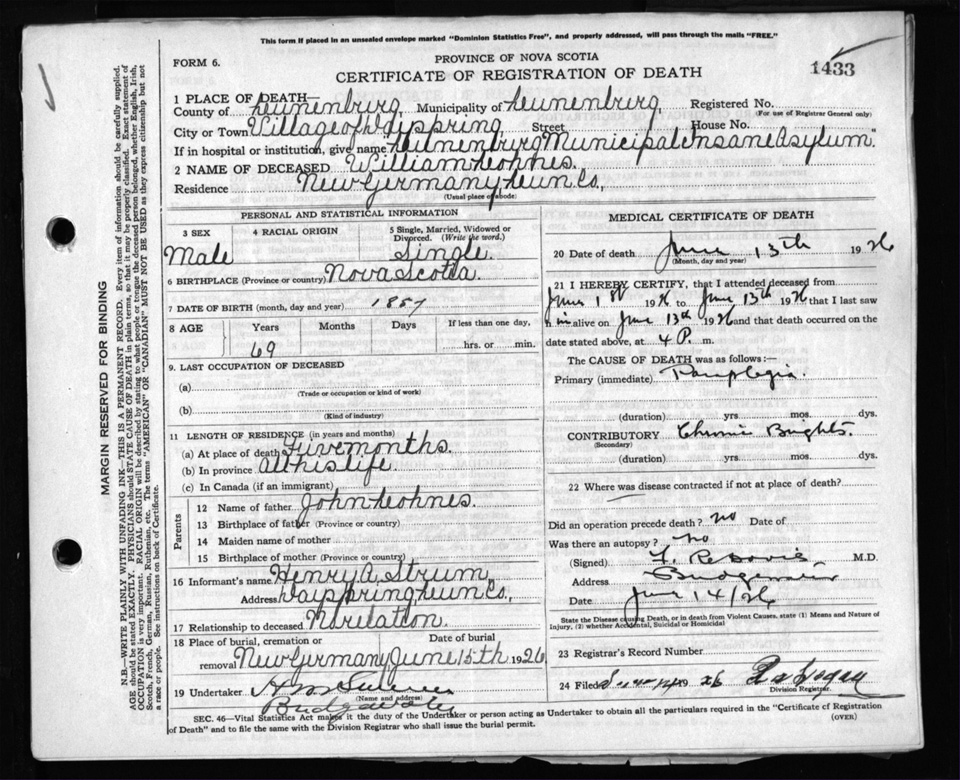 This form if placed in an unsealed envelope marked "Dominion Statistics Free", and properly addressed, will pass through the mails "FREE."
FORM 6.
PROVINCE OF NOVA SCOTIA
CERTIFICATE OF REGISTRATION OF DEATH
1433
1 PLACE OF DEATH—
County of Lunenburg Municipality of Lunenburg Registered No.
(For use of Registrar General only)
City or Town Village of Dayspring Street House No.
If in hospital or institution, give name "Lunenburg Municipal Insane Asylum"
2 NAME OF DECEASED William Lohnes.
Residence New Germany, Lun. Co.,
(Usual place of abode)
PERSONAL AND STATISTICAL INFORMATION
3 SEX
Male
4 RACIAL ORIGIN
5 Single, Married, Widowed or Divorced. (Write the word.)
Single.
6 BIRTHPLACE (Province or country) Nova Scotia.
7 DATE OF BIRTH (month, day and year) 1857
8 AGE Years Months Days If less than one day,
69 hrs. or min.
9. LAST OCCUPATION OF DECEASED
(a)
(Trade or occupation or kind of work)
(b)
(Kind of industry)
11 LENGTH OF RESIDENCE (in years and months)
(a) At place of death Five months.
(b) In province All his life.
(c) In Canada (if an immigrant)
Parents
12 Name of father John Lohnes.
13 Birthplace of father (Province or country)
14 Maiden name of mother
15 Birthplace of mother (Province or country)
16 Informant's name Henry A. Strum,
Address Dayspring Lun. Co.,
17 Relationship to deceased No relation.
18 Place of burial, cremation or removal Date of burial
New Germany June 15th 1926
19 Undertaker
(Name and address)
Bridgewater
MEDICAL CERTIFICATE OF DEATH
20 Date of death June 13th 1926
(Month, day and year)
21 I HEREBY CERTIFY, that I attended deceased from
June 1st 1926 to June 13th 1926 that I last saw
him alive on June 13th 1926 and that death occurred on
date stated above, at 4 P. m.
The CAUSE OF DEATH was as follows:—
Primary (immediate) Paraplegia.
(duration) yrs. mos. dys.
CONTRIBUTORY Chronic Brights.
(Secondary)
(duration) yrs. mos. dys.
22 Where was disease contracted if not at place of death?
Did an operation precede death? no Date of
Was there an autopsy? no
(Signed) M.D.
Address Bridgewater
Date June 14/26
State the Disease causing Death, or in death from Violent Causes, state (1) Means and Nature of Injury, (2) whether Accidental, Suicidal or Homicidal
23 Registrar's Record Number
24 Filed 1926
Division Registrar.
SEC. 46—Vital Statistics Act makes it the duty of the Undertaker or person acting as Undertaker to obtain all the particulars required in the "Certificate of Registration
of Death" and to file the same with the Division Registrar who shall issue the burial permit.
(OVER)
MARGIN RESERVED FOR BINDING
N.B.—WRITE PLAINLY WITH UNFADING INK—THIS IS A PERMANENT RECORD. Every item of information should be carefully supplied.
AGE should be stated EXACTLY. PHYSICIANS should STATE CAUSE OF DEATH in plain terms, so that it may be properly classified. Exact statement of
OCCUPATION is very important. RACIAL ORIGIN will be described by stating to what people or tongue the deceased person belonged, whether English, Irish,
Scotch, French, German, Russian, Ruthenian, etc. The terms "AMERICAN" OR "CANADIAN" MUST NOT BE USED as they express citizenship but not
a race or people. See instructions on back of Certificate.